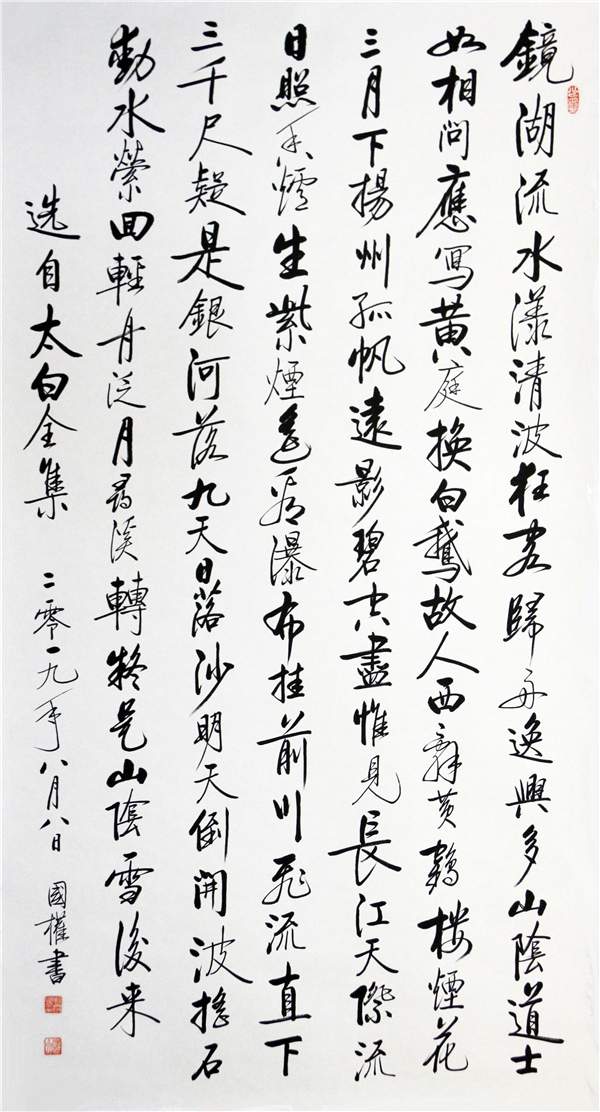 鏡湖流水漾清波狂客歸舟逸興多山陰道士
如相問應寫黄庭換白鵝故人西辭黄鶴楼煙花
三月下揚州孤帆遠影碧空盡惟見長江天際流
日照香爐生紫煙遥看瀑布挂前川飛流直下
三千尺疑是銀河落九天日落沙明天倒開波搖石
動水縈回輕舟泛月尋溪轉疑是山陰雪後来
选自太白全集 二零一九年八月八日 國權書